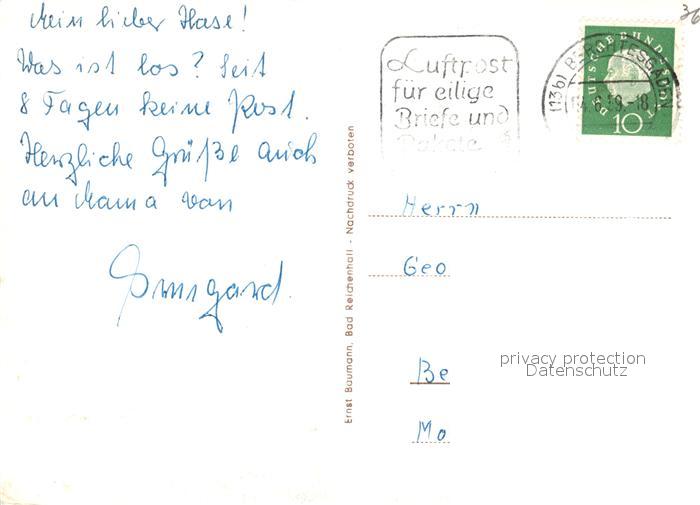 Mein lieber Hase!
Was ist los? Seit
8 Tagen keine Post.
Herzliche Grüße auch
an Mama von
Irmgard.
Ernst Baumann, Bad Reichenhall - Nachdruck verboten
Luftpost
für eilige
Briefe und
Pakete
(13b) BERCHTESGADEN
6.59-18
DEUTSCHE BUNDESPOST
10
36
Herrn
Geo
Be
Mo
privacy protection
Datenschutz